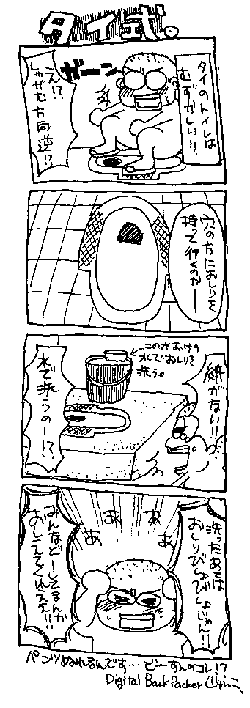 タイ式。
タイのトイレは
むずかしい!!
ガーン
え!?
しゃがむ方向逆!?
穴の方におしりを
持って行くのかー
紙がない!!
このおけの
水でおしりを
洗う。
水で洗うのー!?
洗ったあとは
おしりびしょびしょじゃん!!
あ
あ
あ
あ
みんなどーしてるんか
おしえてくんろ!!
パンツぬれるんです…どーすんのコレ!?
Digital Back Packer